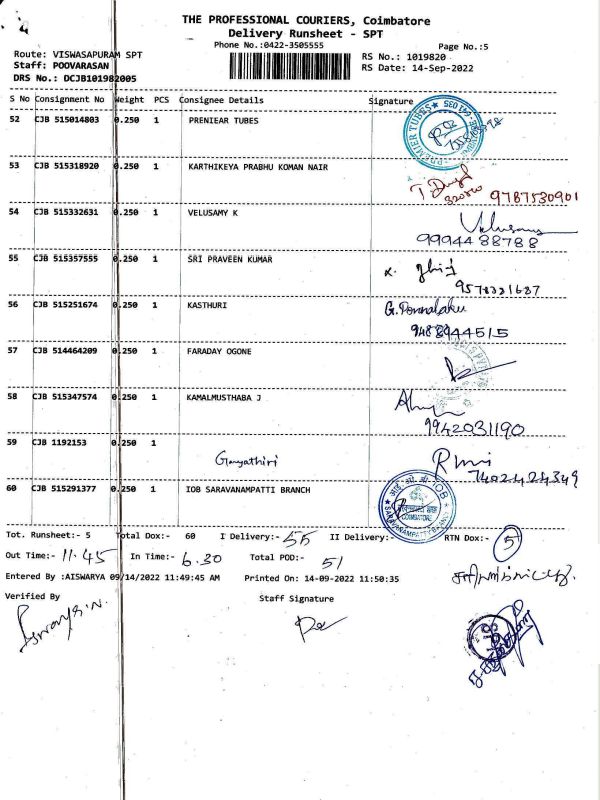 THE PROFESSIONAL COURIERS, Coimbatore
Delivery Runsheet - SPT
Phone No.:0422-3505555
Page No.:5
Route: VISWASAPURAM SPT
Staff: POOVARASAN
DRS No.: DCJB101982005
RS No.: 1019820
RS Date: 14-Sep-2022
S No Consignment No Weight PCS Consignee Details Signature
52 CJB 515014803 0.250 1 PRENIEAR TUBES
PREMIER TUBES
53 CJB 515318920 0.250 1 KARTHIKEYA PRABHU KOMAN NAIR
9787530901
54 CJB 515332631 0.250 1 VELUSAMY K
Velusamy
9994488788
55 CJB 515357555 0.250 1 SRI PRAVEEN KUMAR
9578321687
56 CJB 515251674 0.250 1 KASTHURI
9488944515
57 CJB 514464209 0.250 1 FARADAY OGONE
58 CJB 515347574 0.250 1 KAMALMUSTHABA J
9942031190
59 CJB 1192153 0.250 1
Gangathiri
7402424349
60 CJB 515291377 0.250 1 IOB SARAVANAMPATTI BRANCH
आई. ओ. बी. IOB
COIMBATORE
SARAVANAMPATTY BRANCH
Tot. Runsheet:- 5 Total Dox:- 60 I Delivery:- 55 II Delivery:- RTN Dox:- 5
Out Time:- 11.45 In Time:- 6.30 Total POD:- 51
Entered By :AISWARYA 09/14/2022 11:49:45 AM Printed On: 14-09-2022 11:50:35
Verified By Staff Signature